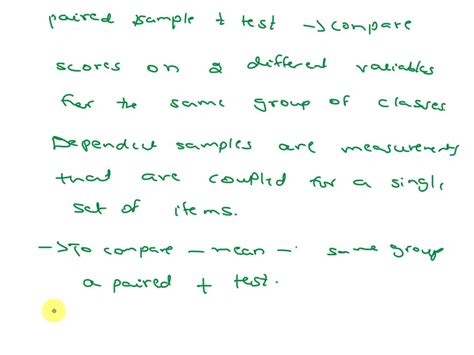 paired sample t test -> compare
scores on 2 different variables
for the same group of classes
Dependent samples are measurements
that are coupled for a single
set of items.
-> To compare - mean - same group
a paired t test.